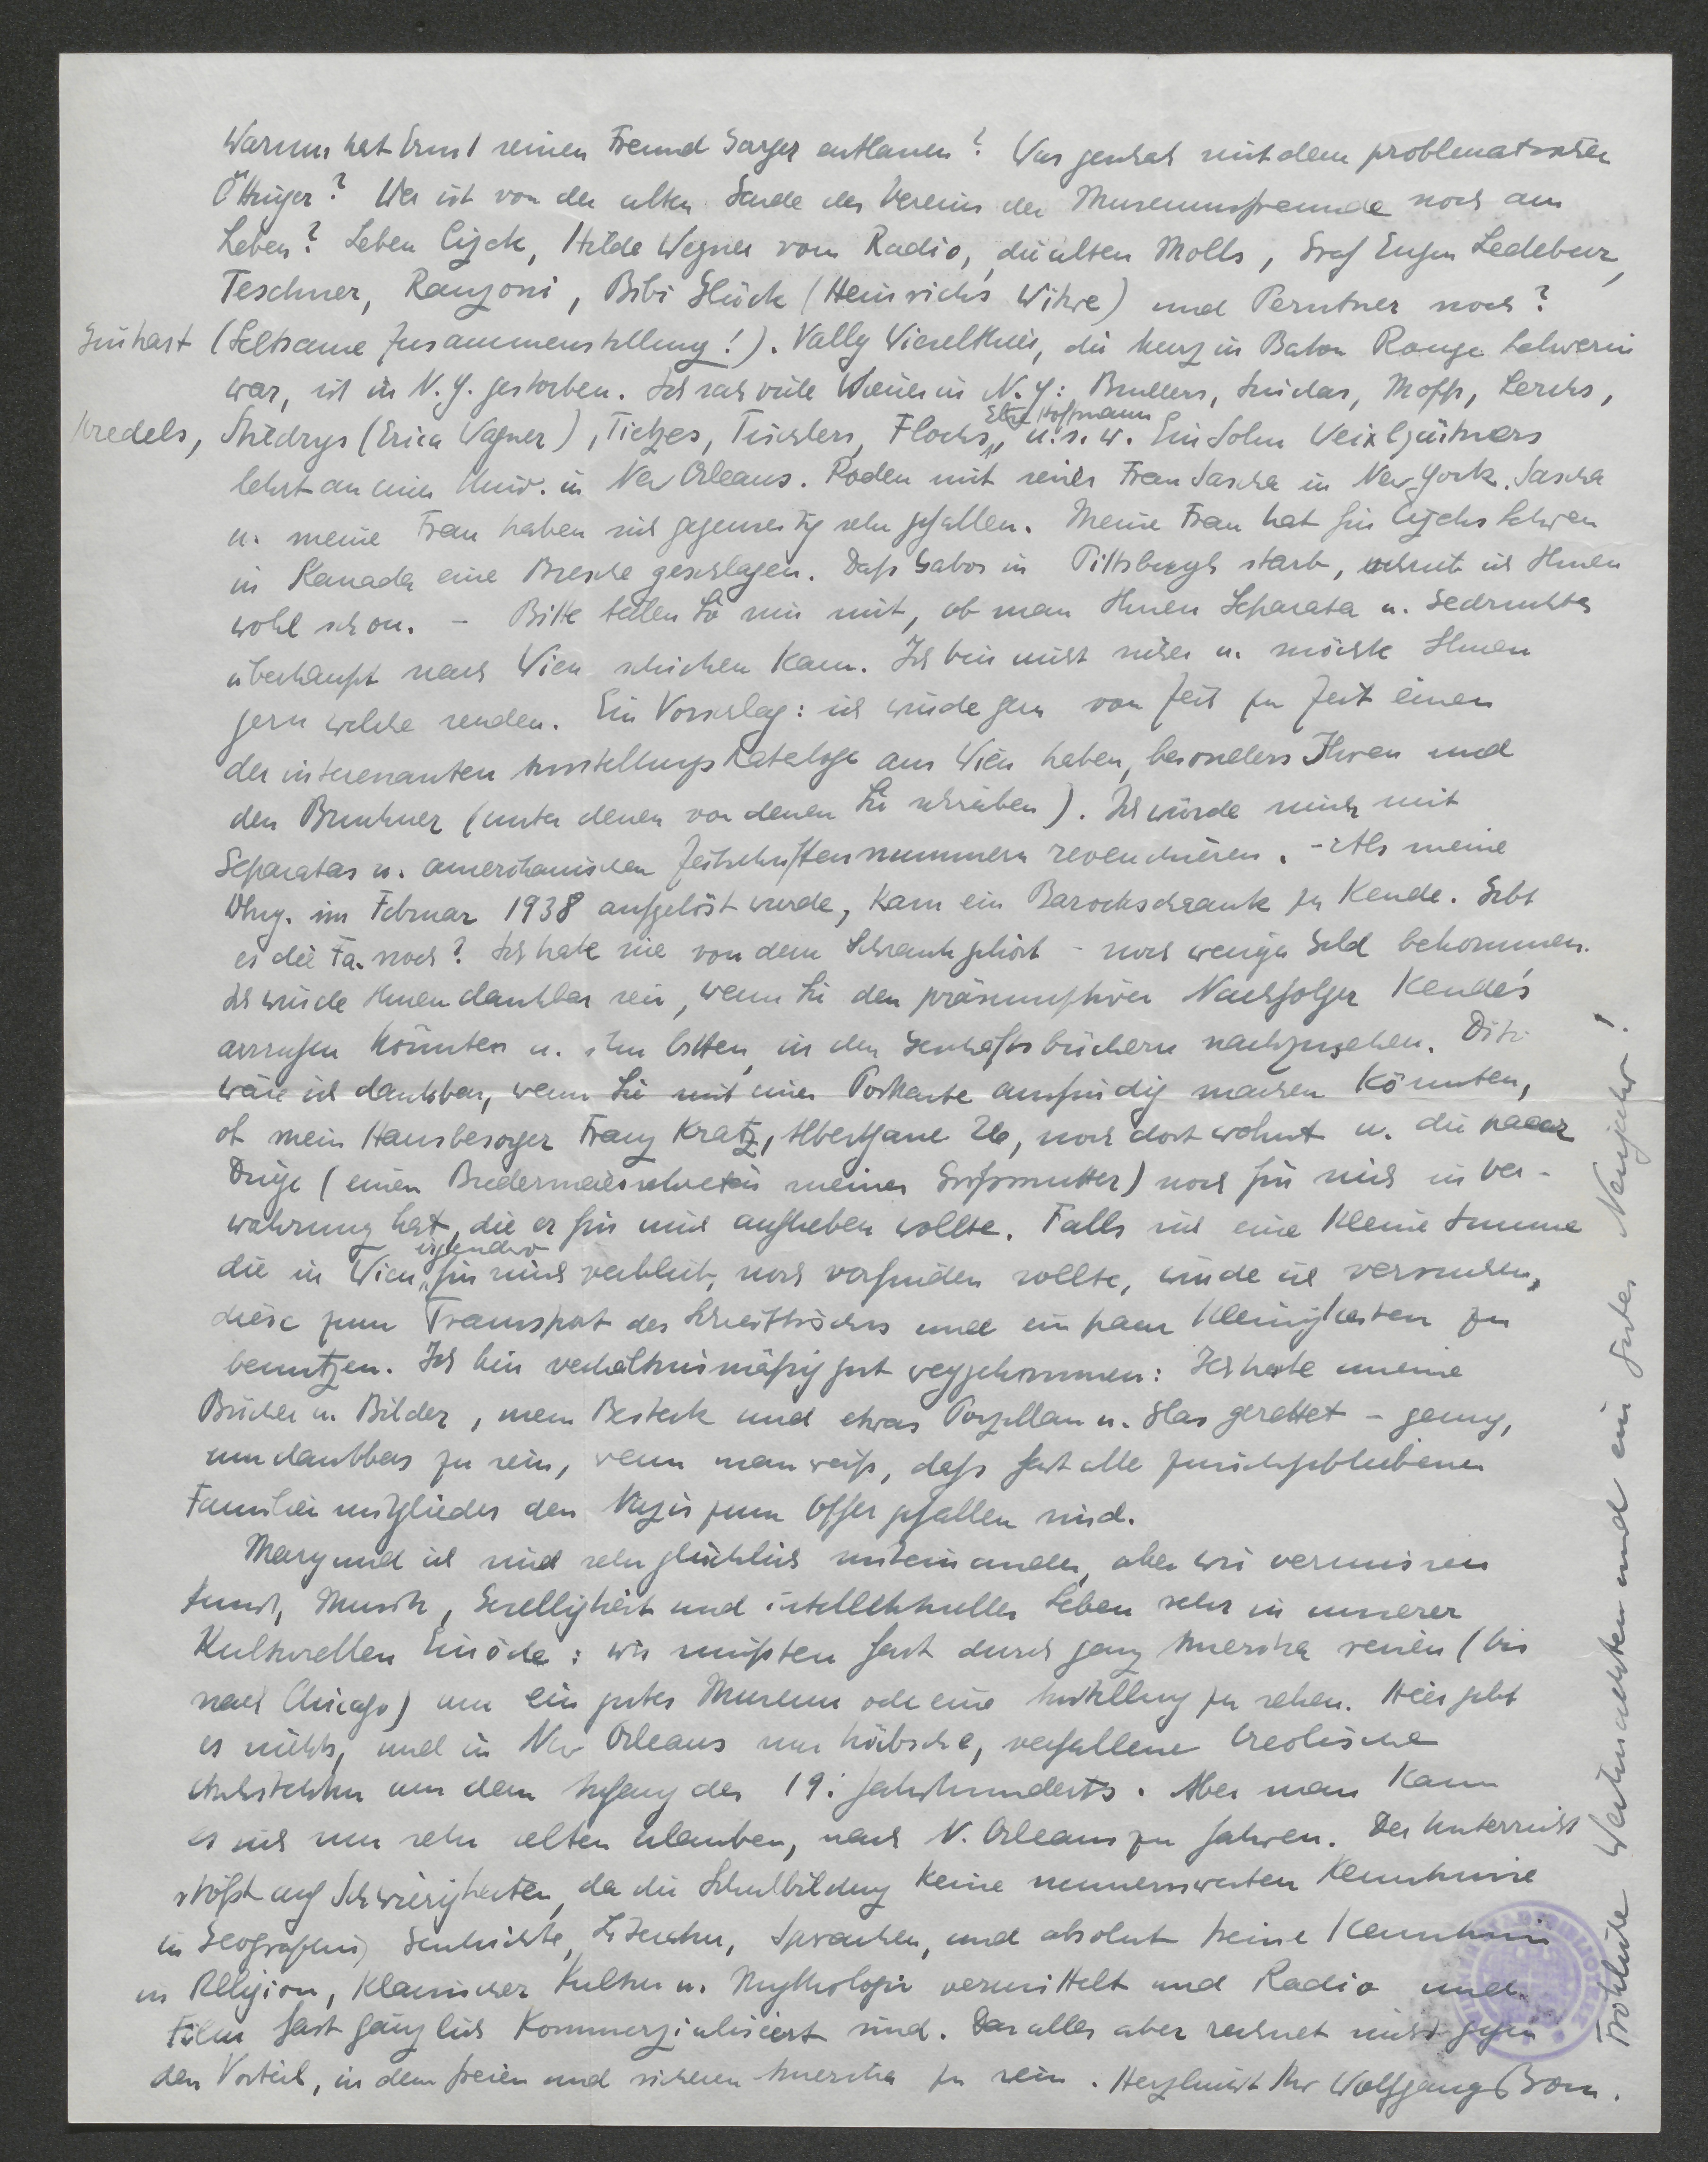 Warum hat Ernst seinen Freund Garger entlassen? Was geschah mit dem problematischen
Öttinger? Wer ist von der alten Garde des Vereins der Museumsfreunde noch am
Leben? Leben Cizek, Hilde Wagner vom Radio, die alten Molls, Graf Eugen Ledebur,
Teschner, Ranzoni, Bibi Glück (Heinrichs Witwe) und Perntner noch?
Ginhart (Seltsame Zusammenstellung!). Vally Wieselthier, die kurz in Baton Rouge Lehrerin
war, ist in N.Y. gestorben. Ich sah viele Wiener in N.Y.: Mopp, Lerchs,
Stiedrys (Erica Wagner), Tietzes, Tischlers, Flochs, Elza Hoffmann u.s.w. Ein Sohn Weixlgärtners
lehrt an einer Univ. in New Orleans. Roden mit seiner Frau Sascha in New York. Sascha
u. meine Frau haben sich gegenseitig sehr gefallen. Meine Frau hat für Cizeks Lehren
in Kanada eine Bresche geschlagen. Daß Gabor in Pittsburgh starb, schrieb ich Ihnen
wohl schon. – Bitte teilen Sie mir mit, ob man Ihnen Separata u. Gedrucktes
überhaupt nach Wien schicken kann. Ich bin nicht sicher u. möchte Ihnen
gern welche senden. Ein Vorschlag: ich würde gern von Zeit zu Zeit einen
der interessanten Ausstellungskataloge aus Wien haben, besonders Ihren und
den Bruckner (unter denen von denen Sie schreiben). Ich würde mich mit
Separatas u. amerikanischen Zeitschriftennummern revenchieren. – Als meine
Whng. im Februar 1938 aufgelöst wurde, kam ein Barockschrank zu Kende. Gibt
es die Fa. noch? Ich habe nie von dem Schrank gehört – noch weniger Geld bekommen.
Ich würde Ihnen dankbar sein, wenn Sie den präsumptiven Nachfolger Kende's
anrufen könnten u. ihn bitten, in den Geschäftsbüchern nachzusehen. Dito
wäre ich dankbar, wenn Sie mit einer Postkarte ausfindig machen könnten,
ob mein Hausbesorger Franz Kratz, Albertgasse 26, noch dort wohnt u. die paar
Dinge (einen Biedermeiersekretär meiner Großmutter) noch für mich in Ver-
wahrung hat, die er für mich aufheben wollte. Falls sich eine kleine Summe
die in Wien irgendwo für mich verblieb, noch vorfinden sollte, würde ich versuchen,
diese zum Transport des Schreibtisches und ein paar Kleinigkeiten zu
benutzen. Ich bin verhältnismäßig gut weggekommen: Ich habe meine
Bücher u. Bilder, mein Besteck und etwas Porzellan u. Glas gerettet – genug,
um dankbar zu sein, wenn man weiß, daß fast alle zurückgebliebenen
Familienmitglieder den Nazis zum Opfer gefallen sind.
Mary und ich sind sehr glücklich miteinander, aber wir vermissen
Kunst, Musik, Geselligkeit und intellektuelles Leben sehr in unserer
kulturellen Einöde: wir müßten fast durch ganz Amerika reisen (bis
nach Chicago) um ein gutes Museum oder eine Ausstellung zu sehen. Hier gibt
es nichts, und in New Orleans nur hübsche, verfallene Creolische
Architektur aus dem Anfang des 19. Jahrhunderts. Aber man kann
es sich nur sehr selten erlauben, nach N. Orleans zu fahren. Der Unterricht
stößt auf Schwierigkeiten, da die Schulbildung keine nennenswerten Kenntnisse
in Geographie, Geschichte, Literatur, Sprachen, und absolut keine Kenntnisse
in Religion, klassischer Kultur u. Mythologie vermittelt und Radio und
Film fast gänzlich kommerzialisiert sind. Das alles aber rechnet nicht gegen
den Vorteil, in dem freien und sicheren Amerika zu sein. Herzlichst Ihr Wolfgang Born.
Fröhliche Weihnachten und ein gutes Neujahr!